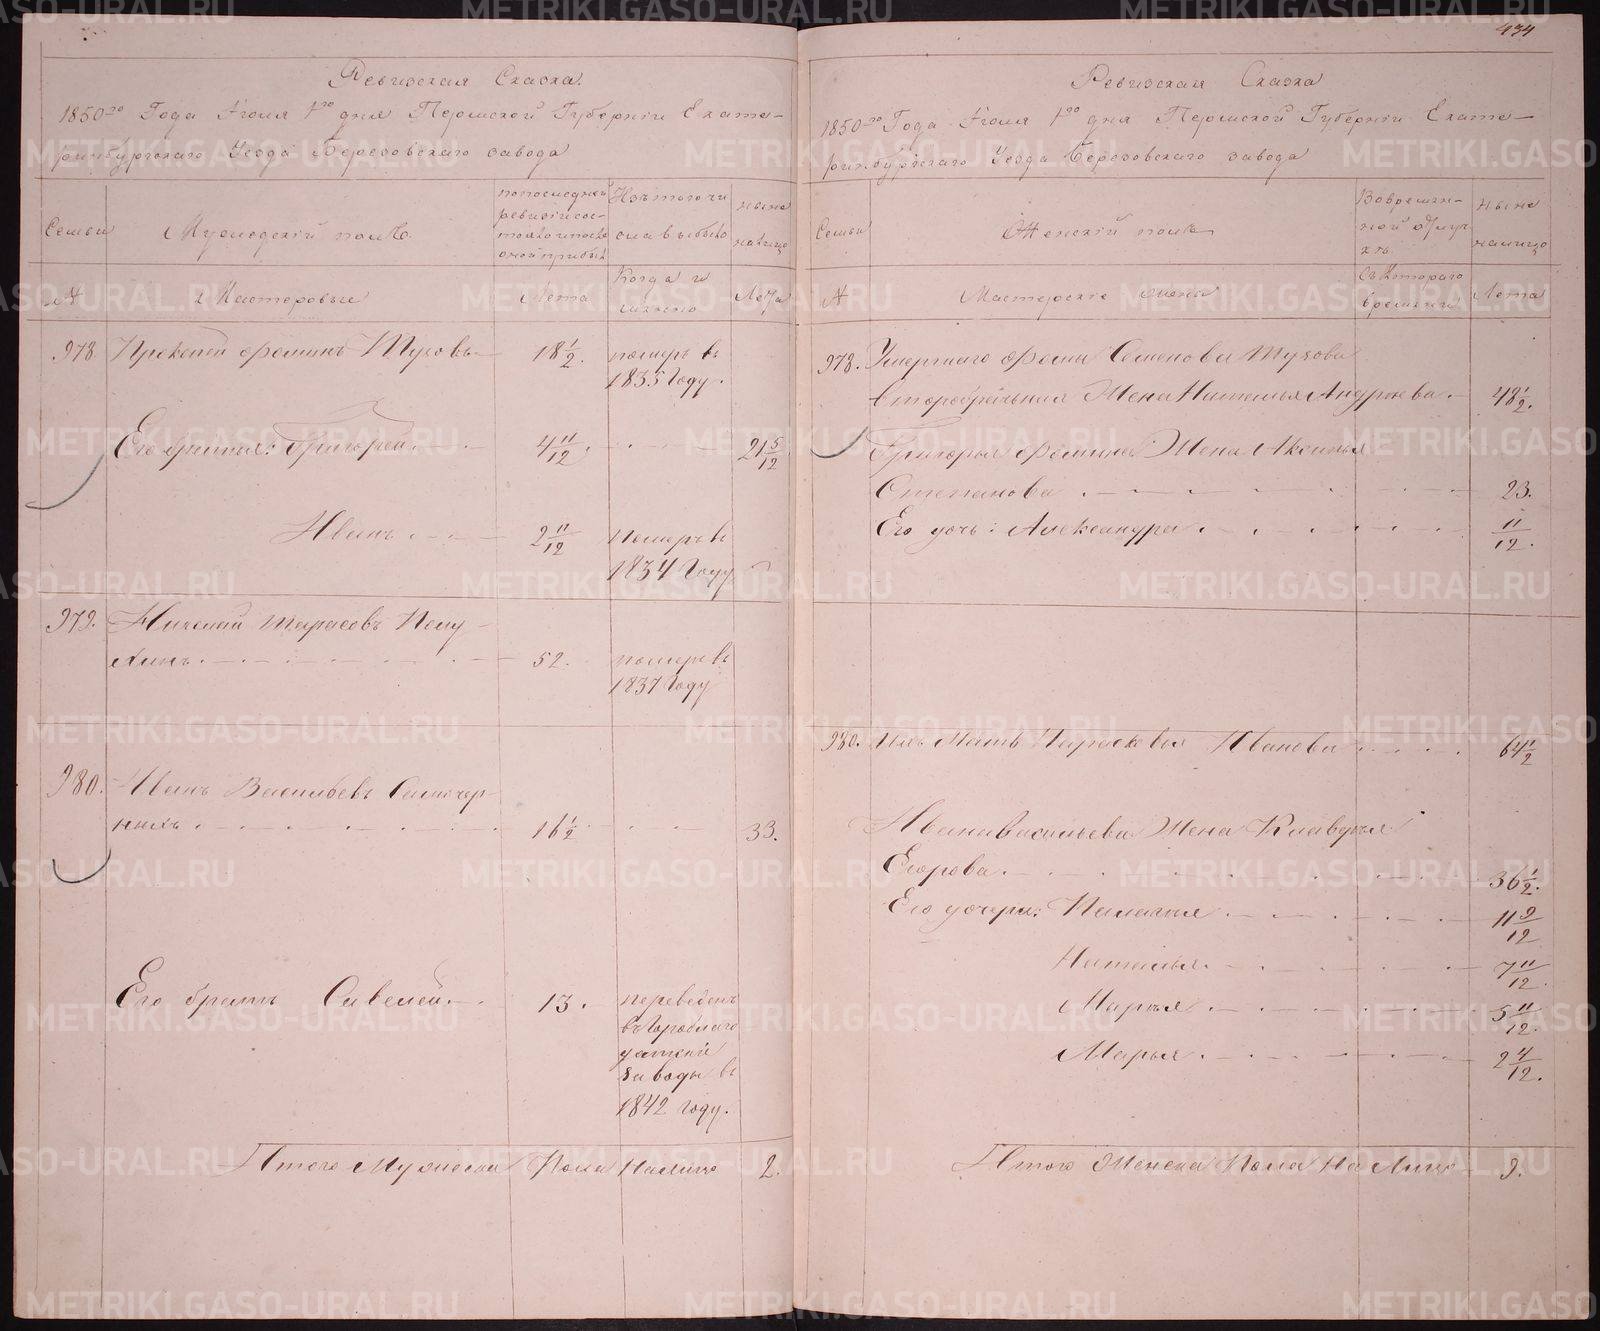 434
Ревизская Сказка.
1850го Года Июля 1го дня Пермской Губернiи Екате-
ринбургскаго Уезда Березовскаго завода
Семьи
Мужескiй полъ.
по последней
ревизiи сос-
тояло и после
оной прибыло
Изъ того чи
сла выбыло
ныне
налицо
№
Мастеровые
Лета
Когда и
именно
Лета
978. Прокопей Фоминъ Туговъ 18 1/2. померъ въ
1835 Году.
Его братья: Григорей 4 11/12. 21 5/12
Иванъ 2 11/12 померъ въ
1834 Году
979. Николай Тарасовъ
52. померъ въ
1837 Году
980. Иванъ Васильевъ
16 1/2 33.
Его братъ Савелей 13. переведенъ
въ
заводы въ
1842 году.
Итого Мужеска Пола Налицо 2.
Ревизская Сказка
1850го Года Июля 1го дня Пермской Губернiи Екате-
ринбургскаго Уезда Березовскаго завода
Семьи
Женскiй полъ
Во времен-
ной отлуч-
кѣ
ныне
налицо
№
Мастерскiе жены
Съ Котораго
времени
Лета
978. Умершаго Фомы Семенова Тугова
второбрачная Жена Наталья Андреева 48 1/2.
Григорья Фомина Жена Аксинья
Степанова 23.
Его дочь: Александра 11/12.
980. Ихъ Мать Парасковья Иванова 64 1/2
Ивана Васильева Жена Клавдья
Егорова 36 1/2.
Его дочери: Палагья 11 9/12
Наталья 7 11/12.
Марья 5 11/12.
Марья 2 4/12.
Итого Женска Пола На Лицо 9.
METRIKI.GASO-URAL.RU